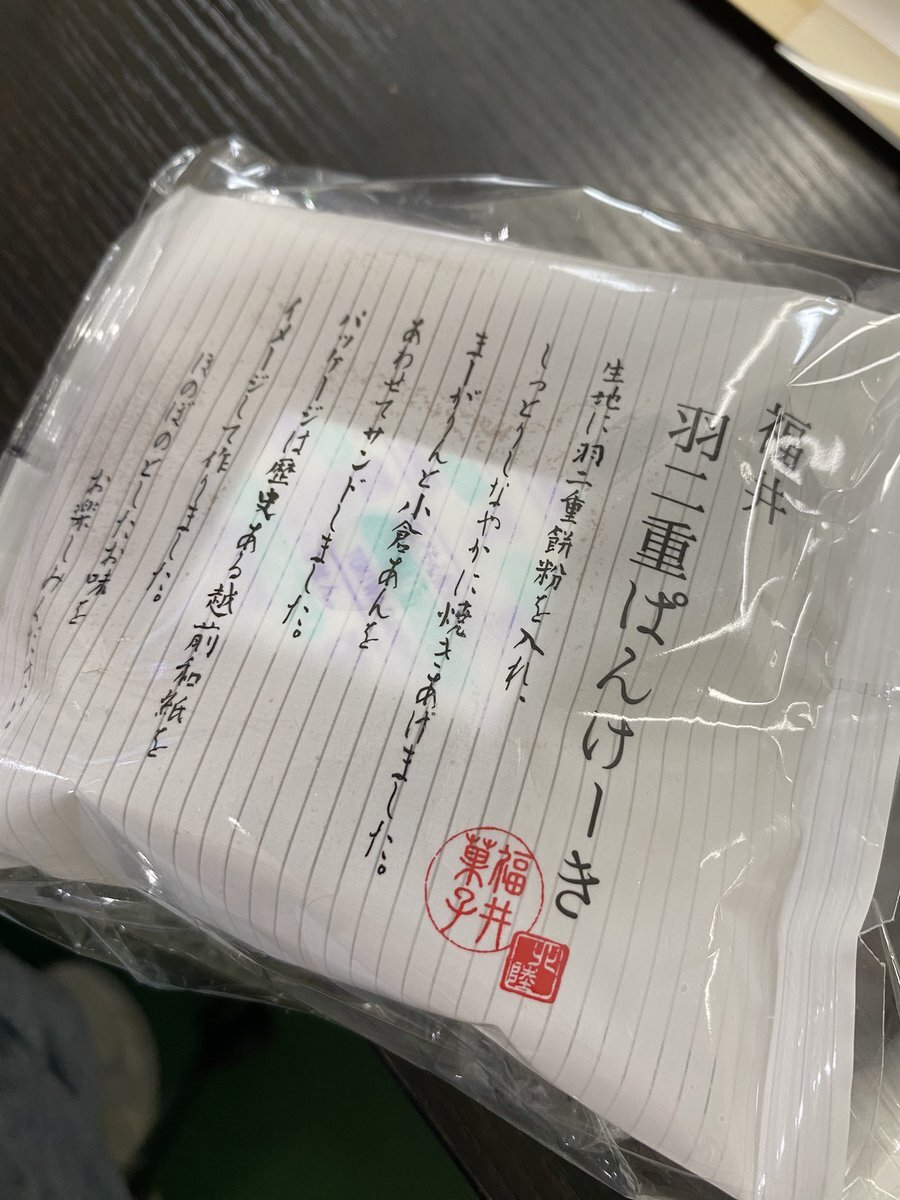 福井
羽二重ぱんけーき
生地に羽二重餅粉を入れ、
しっとりしなやかに焼きあげました。
まーがりんと小倉あんを
あわせてサンドしました。
パッケージは歴史ある越前和紙を
イメージして作りました。
ほのぼのとしたお味を
お楽しみください
福井
菓子
北陸